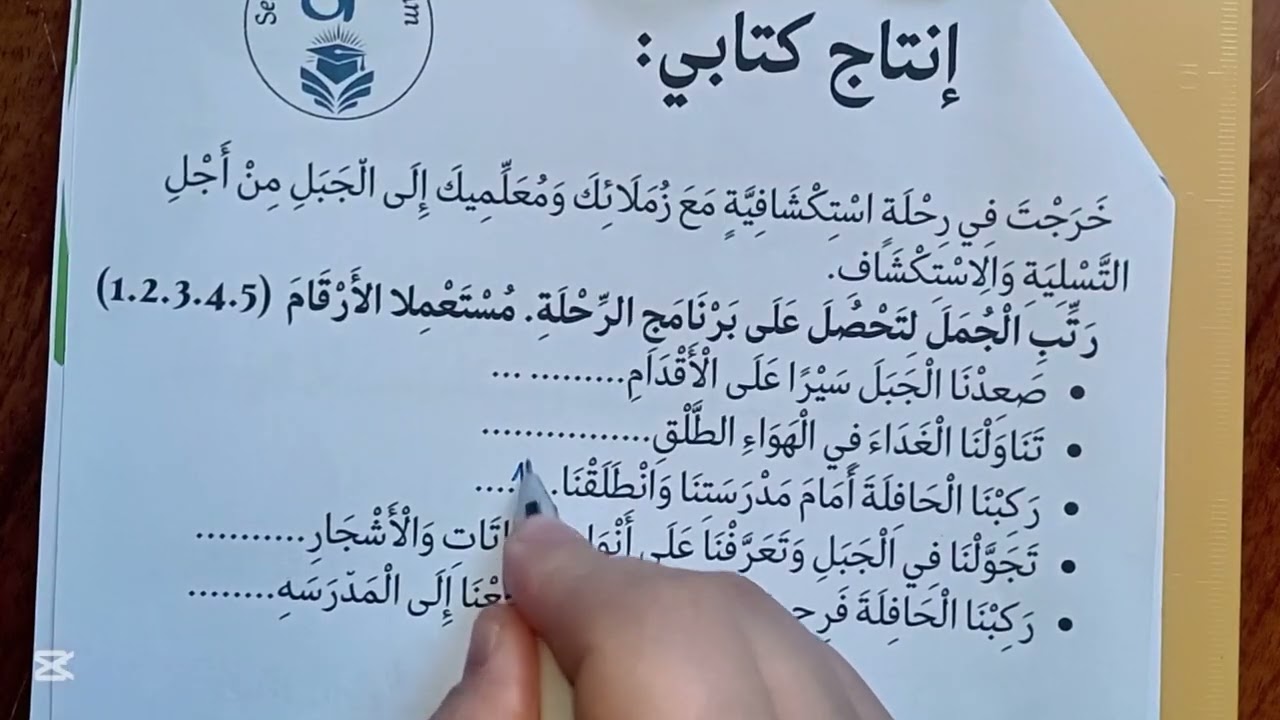 Se
am
إنتاج كتابي:
خَرَجْتَ فِي رِحْلَةٍ اسْتِكْشَافِيَّةٍ مَعَ زُمَلَائِكَ وَمُعَلِّمِيكَ إِلَى الّجَبَلِ مِنْ أَجْلِ
التَّسْلِيَةِ وَالِاسْتِكْشَافِ.
رَتِّبِ الْجُمَلَ لِتَحْصُلَ عَلَى بَرْنَامَجِ الرِّحْلَةِ. مُسْتَعْمِلا الأَرْقَامَ (1.2.3.4.5)
• صَعِدْنَا الْجَبَلَ سَيْرًا عَلَى الْأَقْدَامِ......... ...
• تَنَاوَلْنَا الْغَدَاءَ فِي الْهَوَاءِ الطَّلْقِ................
• رَكِبْنَا الْحَافِلَةَ أَمَامَ مَدْرَسَتِنَا وَانْطَلَقْنَا. 1 ....
• تَجَوَّلْنَا فِي الْجَبَلِ وَتَعَرَّفْنَا عَلَى وَالْأَشْجَارِ..........
• رَكِبْنَا الْحَافِلَةَ إِلَى الْمَدّرَسَهِ........